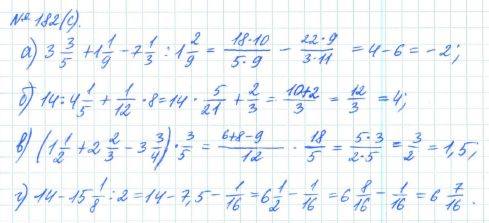 № 182(с).
а) 3 3/5 + 1 1/9 - 7 1/3 : 1 2/9 = 18·10/5·9 - 22·9/3·11 = 4 - 6 = -2;
б) 14 : 4 1/5 + 1/12 · 8 = 14 · 5/21 + 2/3 = 10+2/3 = 12/3 = 4;
в) (1 1/2 + 2 2/3 - 3 3/4) · 3/5 = 6+8-9/12 · 18/5 = 5·3/2·5 = 3/2 = 1,5;
г) 14 - 15 1/8 : 2 = 14 - 7,5 - 1/16 = 6 1/2 - 1/16 = 6 8/16 - 1/16 = 6 7/16.